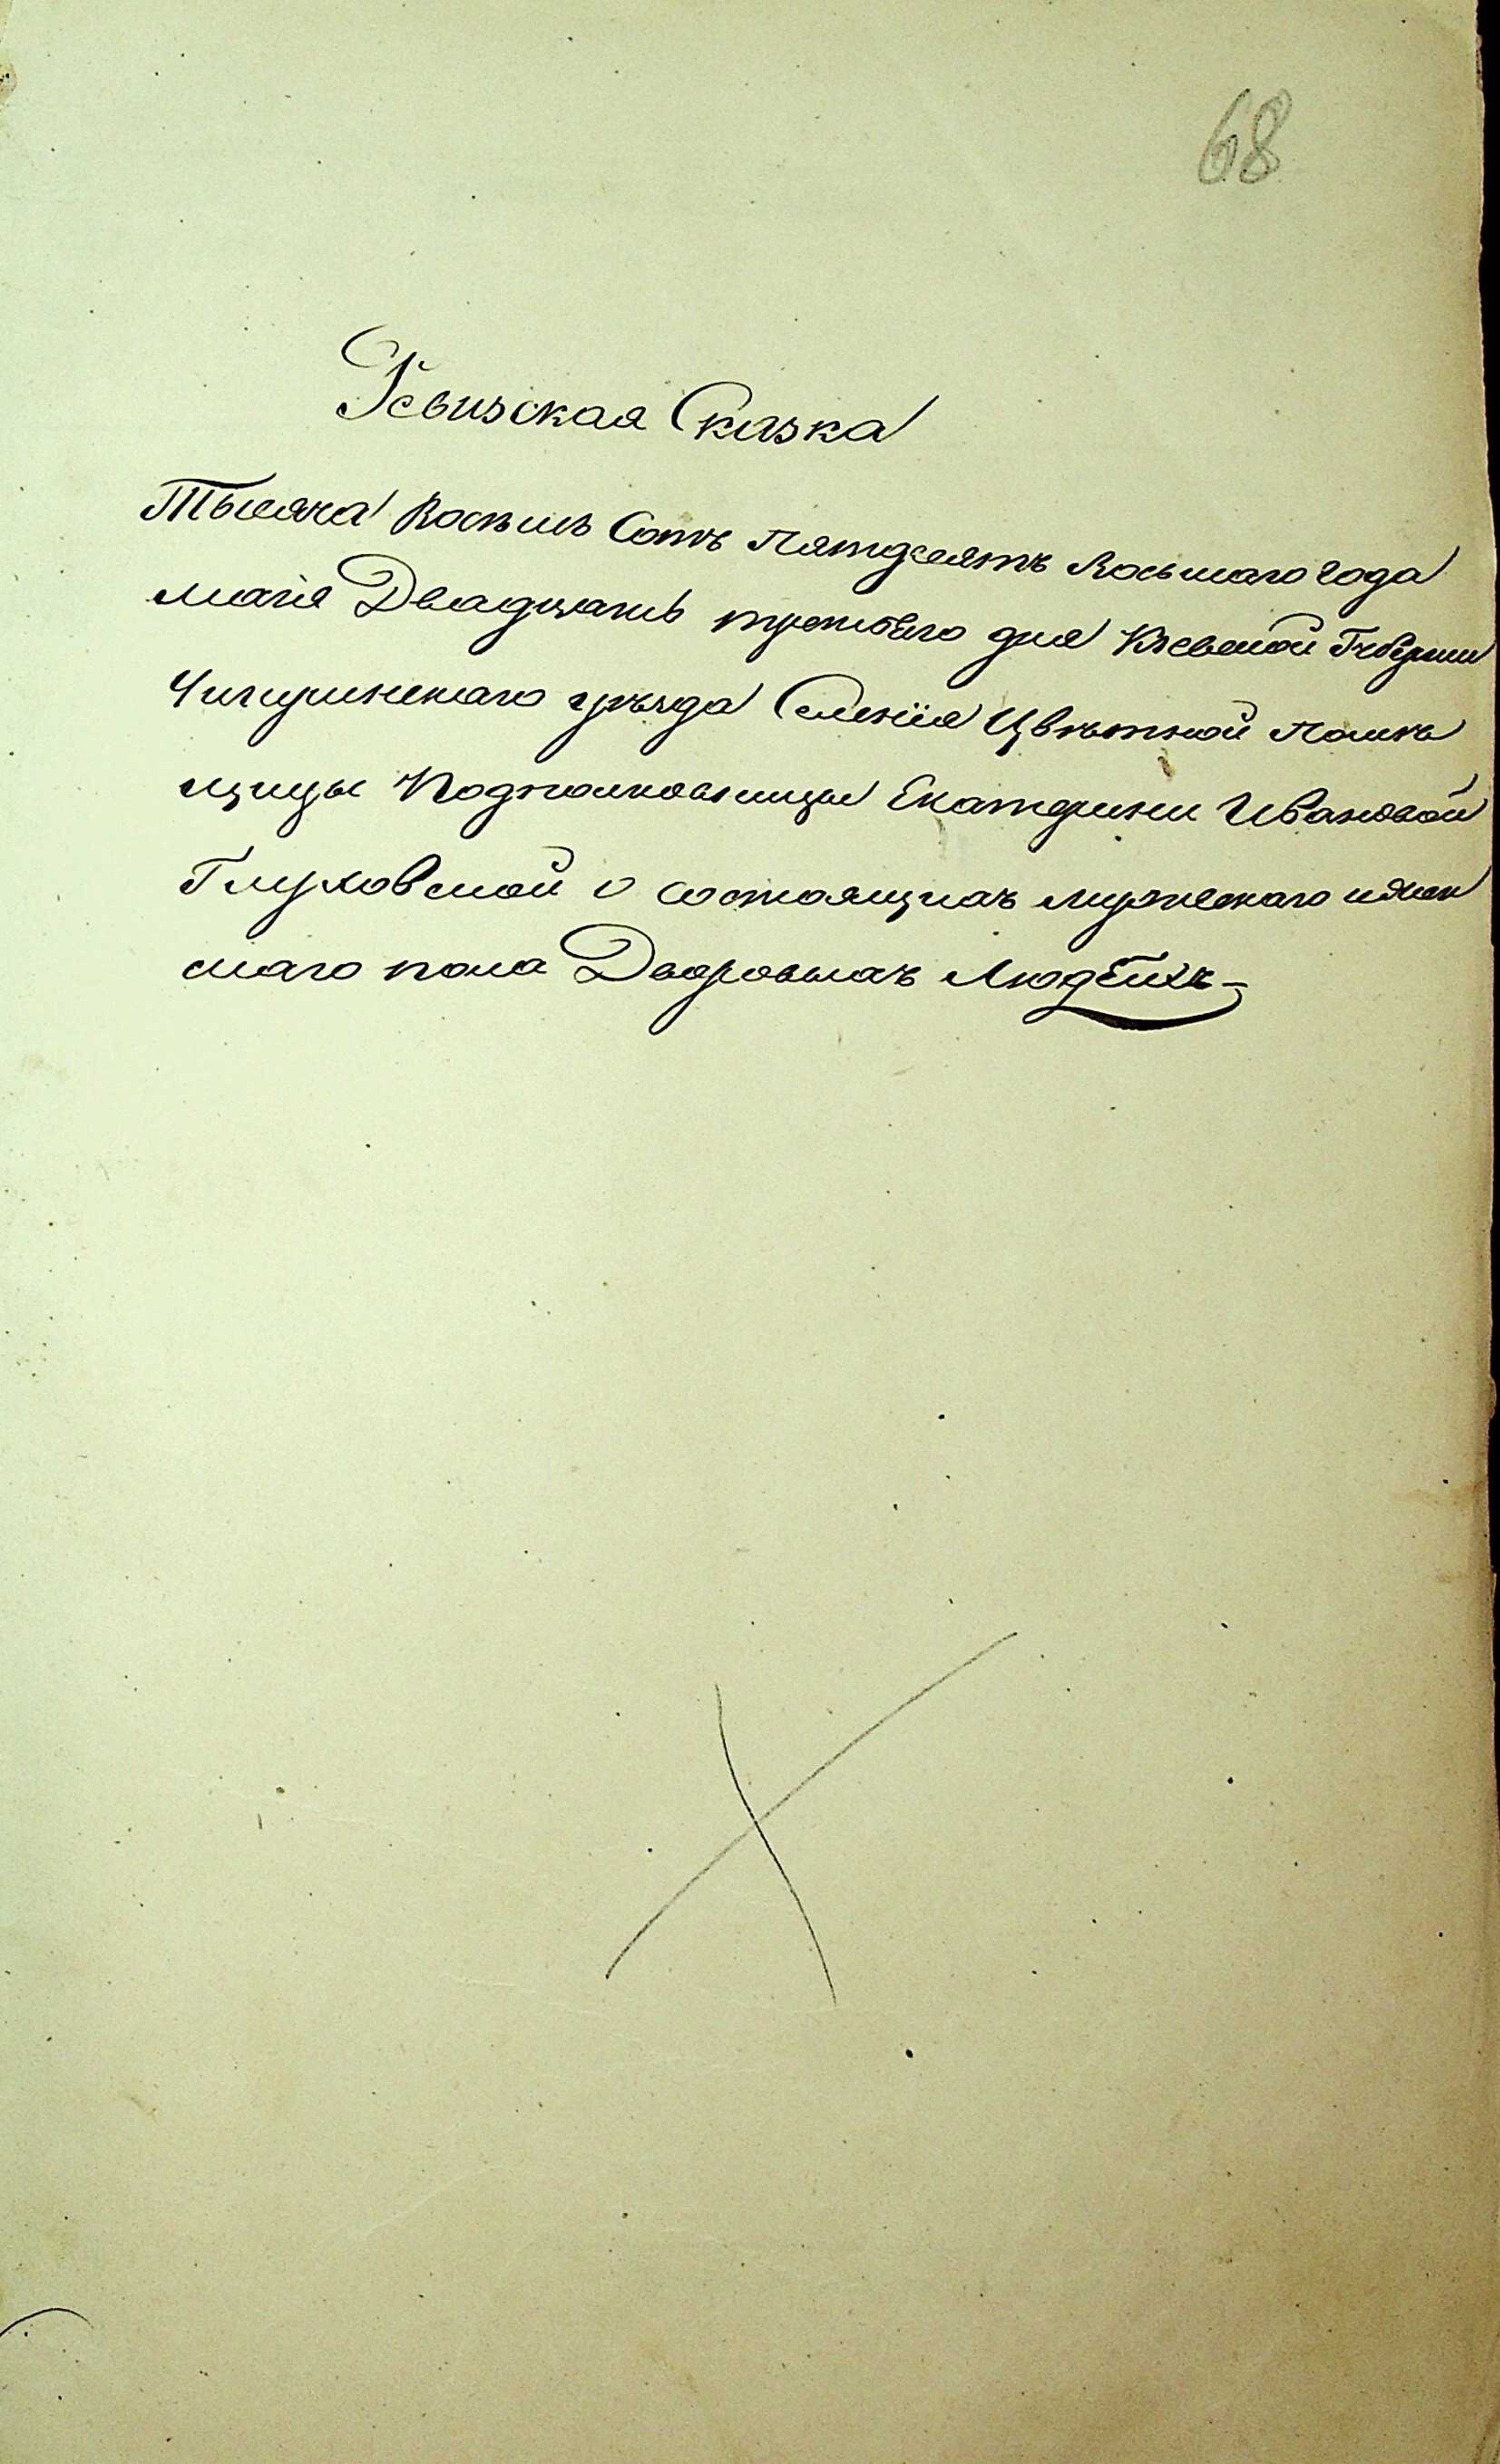 68
Ревизская Сказка
Тысяча Восемь Сотъ Пятдесятъ Восьмаго года
маія Двадцать третьего дня Кіевской Губерніи
Чигиринскаго уѣзда Селенія Цвѣтной Помѣ
щицы Подполковницы Екатерини Ивановой
Глуховской о состоящихъ мужескаго и жен
скаго пола Дворовыхъ Людехъ